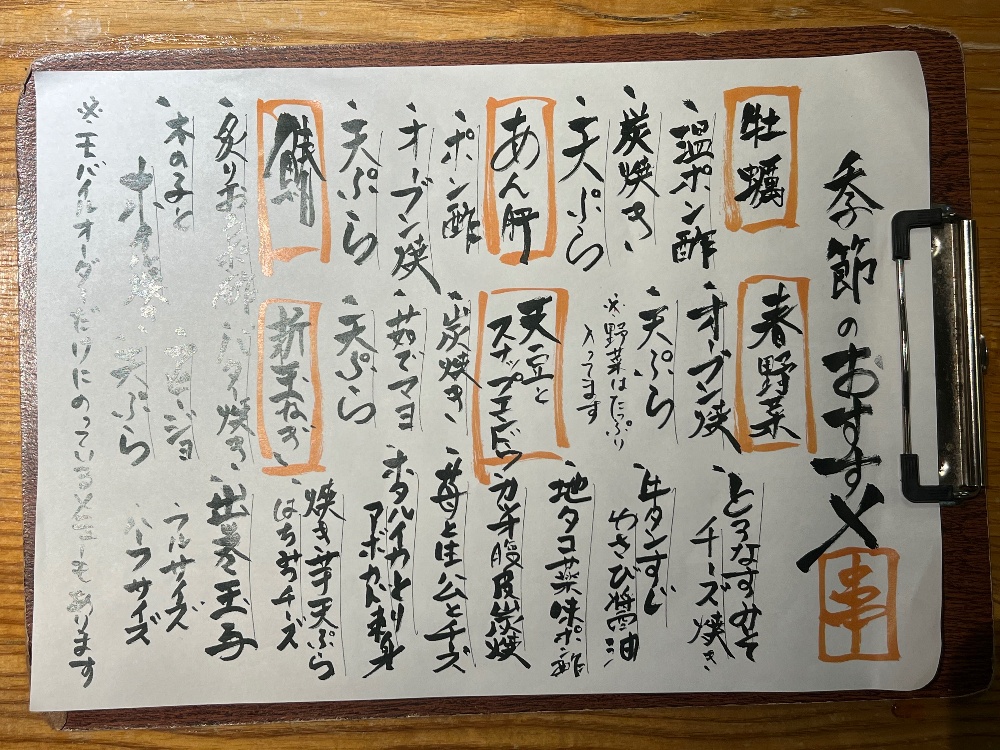 季節のおすすめ
串
牡蠣
温ポン酢
炭焼き
天ぷら
あん肝
ポン酢
オーブン焼
天ぷら
炙りお
木の子と
ホイル焼
春野菜
オーブン焼
天ぷら
※野菜はたっぷり
入ってます
天豆と
スナップエンドウ
炭焼き
茹でマヨ
天ぷら
新玉ねぎ
バター焼き
アヒージョ
天ぷら
とろなすみそ
チーズ焼き
牛タンすじ
わさび醤油
地タコ薬味ポン酢
腹皮炭焼
苺と生ハムとチーズ
ホタルイカと
アボカド刺身
焼き芋天ぷら
はちみつチーズ
出し巻玉子
フルサイズ
ハーフサイズ
※モバイルオーダーだけにのっているメニューもあります